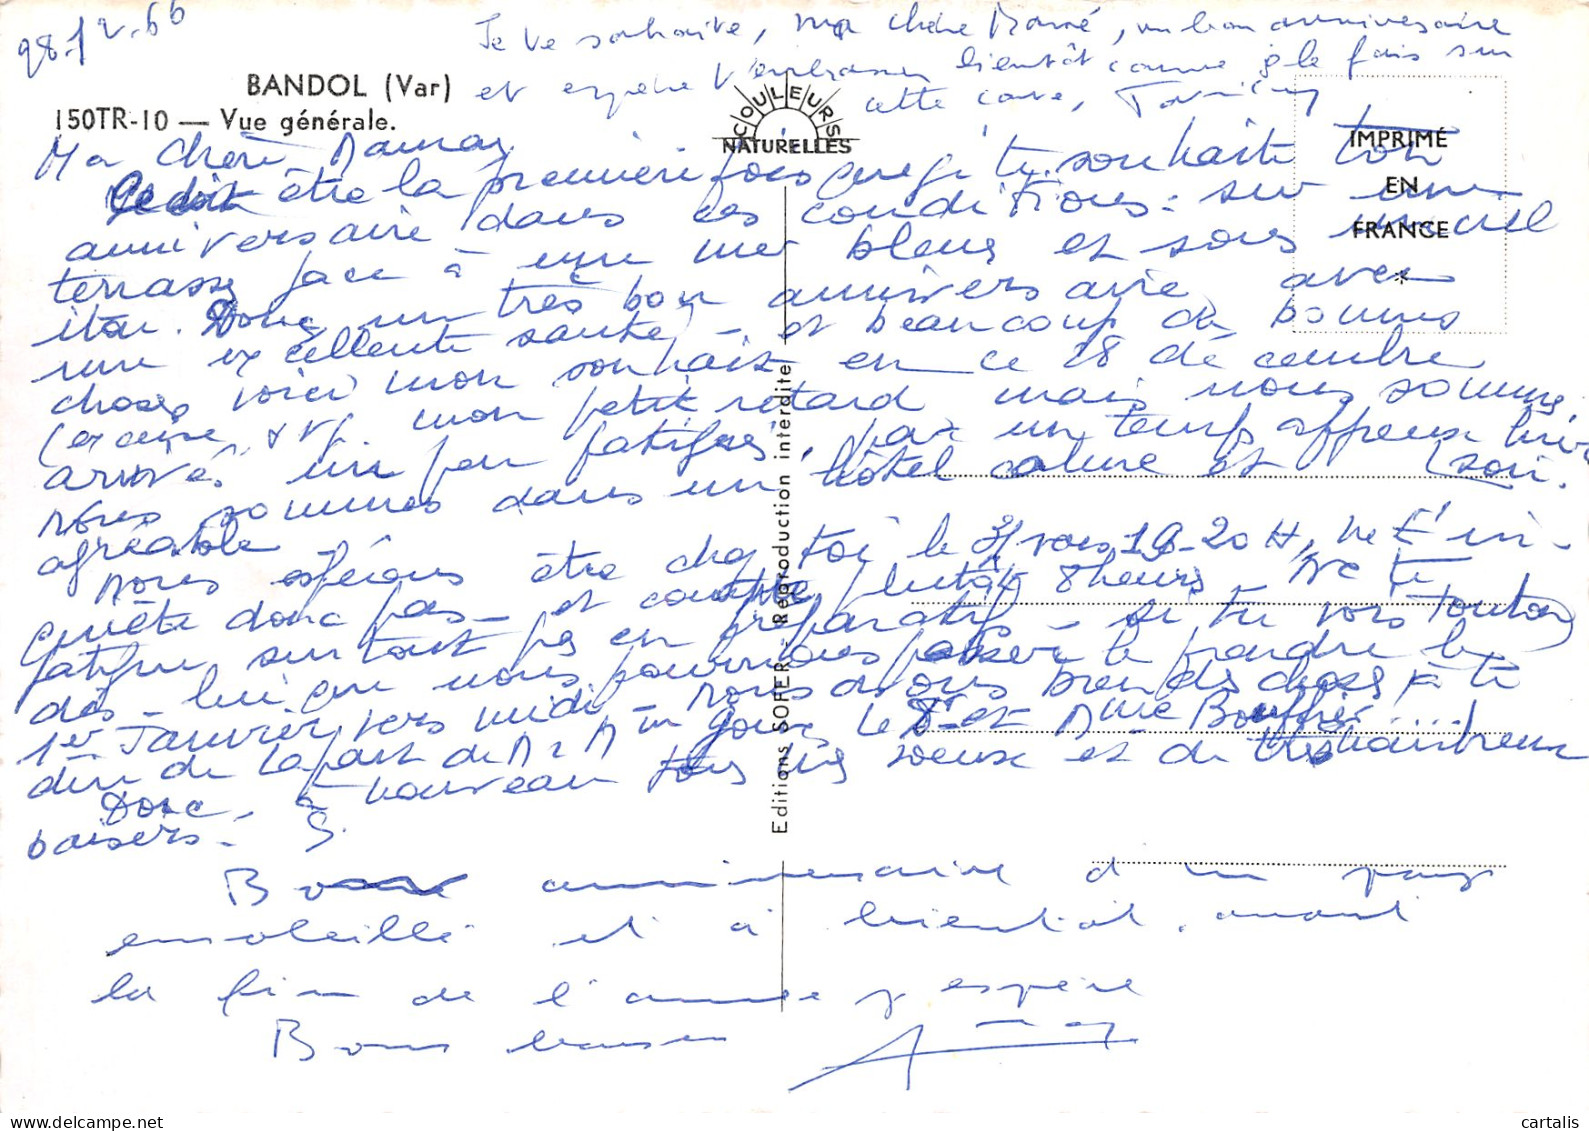 28.12.66
Je te souhaite, ma chère Mamé, un bon anniversaire
et espère t'embrasser bientôt comme je le fais sur
cette carte,
BANDOL (Var)
150TR-10 — Vue générale.
COULEURS
NATURELLES
IMPRIMÉ
EN
FRANCE
*
Editions SOFER - Reproduction interdite
Ma chère Maman
Ce doit être la première fois que je te souhaite ton
anniversaire dans ces conditions : sur une
terrasse face à une mer bleue et sous un ciel
itou. Donc un très bon anniversaire, avec
une excellente santé - et beaucoup de bonnes
choses voici mon souhait en ce 28 décembre
(excuse mon petit retard mais nous sommes
arrivés un peu fatigués, par un temps affreux hier soir.
Nous sommes dans un hôtel calme et
agréable
Nous espérons être chez toi le 31 vers 19-20 H, ne t'in-
quiète donc pas - et compte plutôt 8 heures - Ne te
fatigue surtout pas en préparatifs - si tu vois Tonton
dis-lui que nous pourrions passer le prendre le
1er Janvier vers midi. Nous avons bien des choses à te
dire de la part de M et Mme Goux, le Dr et Mme
Donc, à nouveau tous mes voeux et de très nombreux
baisers - S.
Bon anniversaire d'un pays
ensoleillé et à bientôt, avant
la fin de l'année j'espère
Bons baisers
cartalis